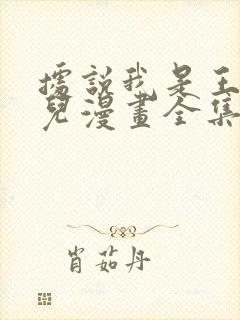 據說我是王
兒漫畫全集
肖茹丹